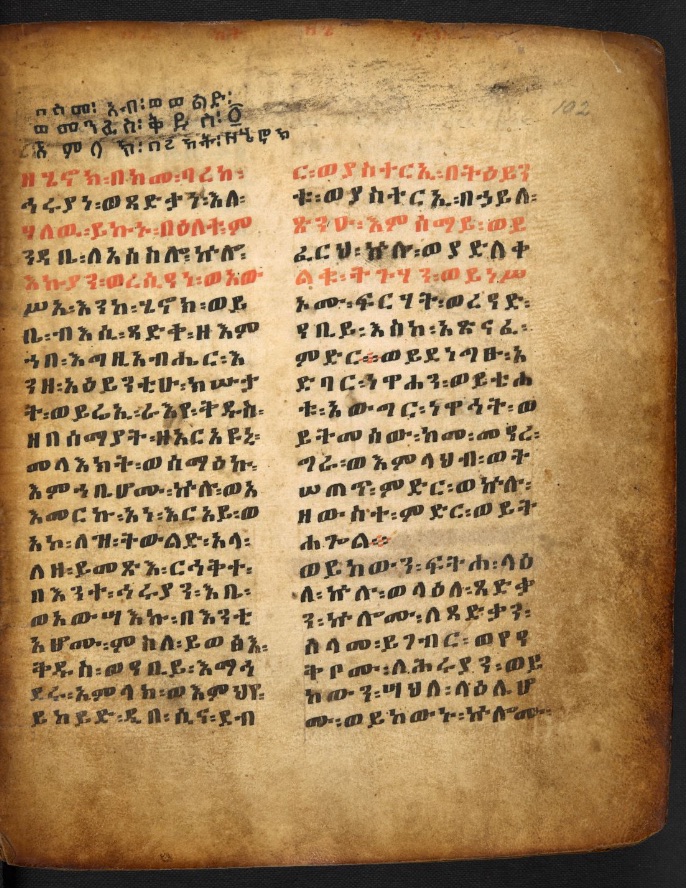 በስመ፡ አብ፡ ወወልድ፡
ወመንፈስ፡ ቅዱስ፡ ፩
አምላክ፡ በረከት፡ ዘሄኖክ
ዘሄኖክ፡ በከመ፡ ባረከ፡
ኅሩያነ፡ ወጻድቃን፡ እለ፡
ሃለዉ፡ ይኩኑ፡ በዕለተ፡ ም
ንዳቤ፡ ለአሰስሎ፡ ኵሎ፡
እኩያን፡ ወረሲዓን፡ ወአው
ሥአ፡ እንከ፡ ሄኖክ፡ ወይ
ቤ፡ ብእሲ፡ ጻድቅ፡ ዘእም
ኀበ፡ እግዚአብሔር፡ እ
ንዘ፡ አዕይንቲሁ፡ ክሡታ
ት፡ ወይሬኢ፡ ራእየ፡ ቅዱስ፡
ዘበሰማያት፡ ዘአርአዩኒ፡
መላእክት፡ ወሰማዕኩ፡
እምኀቤሆሙ፡ ኵሎ፡ ወአ
እመርኩ፡ አነ፡ እርአይ፡ ወ
አኮ፡ ለዝ፡ ትውልድ፡ አላ፡
ለዘ፡ ይመጽእ፡ ርኅቅተ፡
በእንተ፡ ኅሩያን፡ እቤ፡
ወአውሣእኩ፡ በእንቲ
አሆሙ፡ ምስለ፡ ይወፅእ፡
ቅዱስ፡ ወዓቢይ፡ እማኅ
ደሩ፡ አምላክ፡ ወእምህየ፡
ይከይድ፡ ዲበ፡ ሲና፡ ደብ
ር፡ ወያስተርኢ፡ በትዕይን
ቱ፡ ወያስተርኢ፡ በኃይለ፡
ጽንዑ፡ እምሰማይ፡ ወይ
ፈርህ፡ ኵሉ፡ ወያድለቀ
ልቁ፡ ትጉሃን፡ ወይነሥ
ኦሙ፡ ፍርሃት፡ ወረዓድ፡
ዓቢይ፡ እስከ፡ አጽናፈ፡
ምድር። ወይደነግፁ፡ አ
ድባር፡ ነዋሐን፡ ወይቴሐ
ቱ፡ አውግር፡ ነዋኅት፡ ወ
ይትመሰው፡ ከመ፡ መዓረ፡
ግራ፡ ወእምላህብ፡ ወት
ሠጠጥ፡ ምድር፡ ወኵሉ፡
ዘውስተ፡ ምድር፡ ወይት
ሐጐል።
ወይከውን፡ ፍትሐ፡ ላዕ
ለ፡ ኵሉ፡ ወላዕለ፡ ጻድቃ
ን፡ ኵሎሙ፡ ለጻድቃን፡
ሰላመ፡ ይገብር፡ ወየዓ
ቅቦሙ፡ ለኅሩያን፡ ወይ
ከውን፡ ሣህለ፡ ላዕሌሆ
ሙ፡ ወይከውኑ፡ ኵሎሙ፡